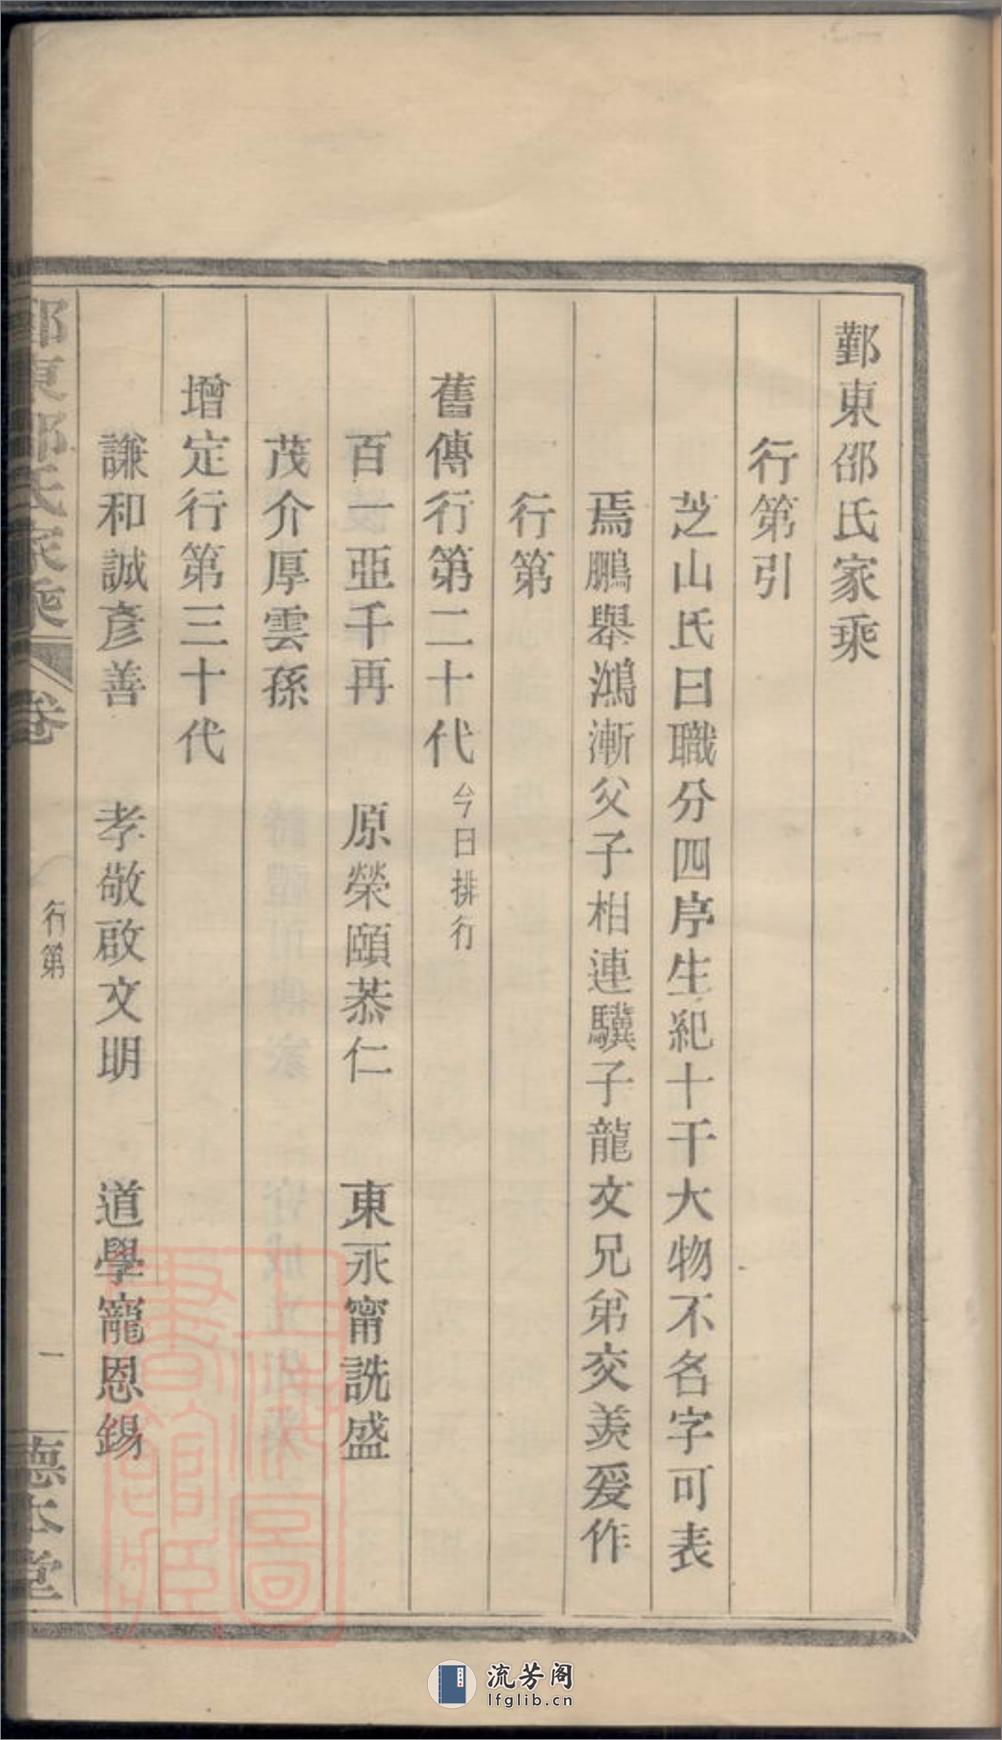 鄞東邵氏家乘
行第引
芝山氏曰職分四序生紀十干大物不名字可表
焉鵬舉鴻漸父子相連驥子龍文兄弟交美爰作
行第
舊傳行第二十代 今日排行
百一亞千再 原榮頤恭仁 東永甯詵盛
茂介厚雲孫
增定行第三十代
謙和誠彥善 孝敬啟文明 道學寵恩錫
鄞東邵氏家乘 卷 行第 一 德本堂
上海圖書館藏
流芳阁
lfglib.cn